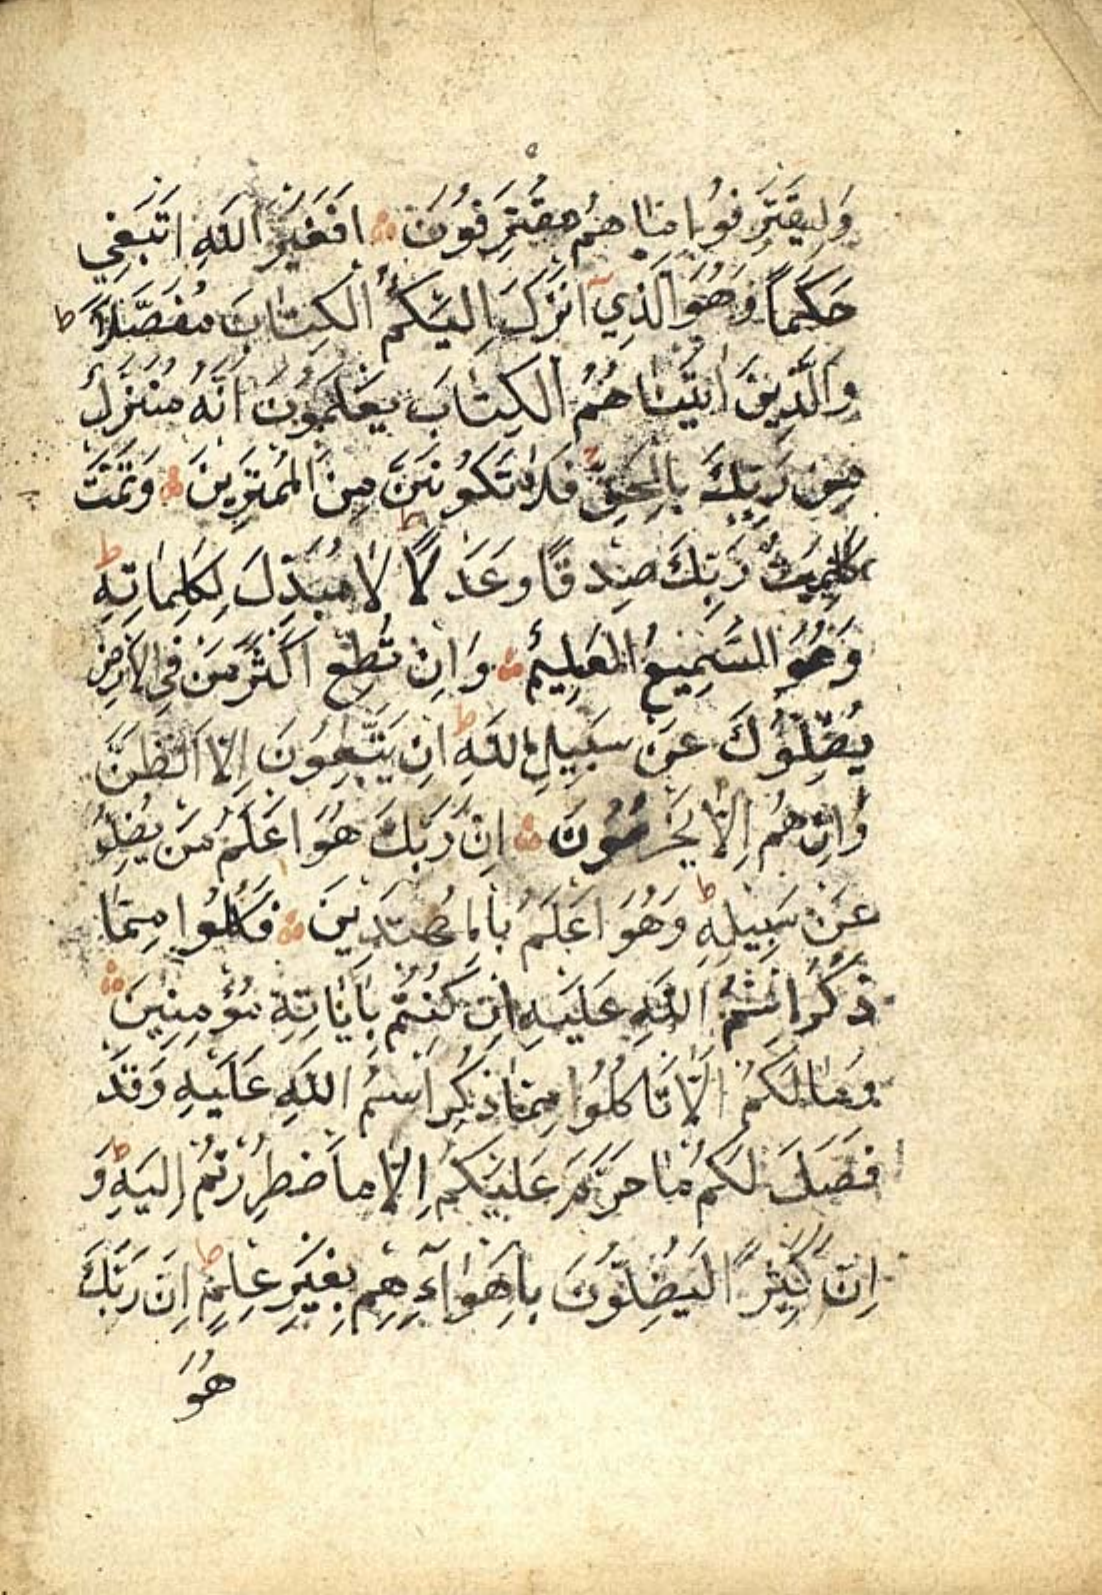 وَلِيَقْتَرِفُوا مَا هُمْ مُقْتَرِفُونَ اَفَغَيْرَ اللّٰهِ اَبْتَغِي
حَكَمًا وَهُوَ الَّذِي اَنْزَلَ اِلَيْكُمُ الْكِتَابَ مُفَصَّلًا ط
وَالَّذِينَ اٰتَيْنَاهُمُ الْكِتَابَ يَعْلَمُونَ اَنَّهُ مُنَزَّلٌ
مِنْ رَبِّكَ بِالْحَقِّ فَلَا تَكُونَنَّ مِنَ الْمُمْتَرِينَ وَتَمَّتْ
كَلِمَتُ رَبِّكَ صِدْقًا وَعَدْلًا ط لَا مُبَدِّلَ لِكَلِمَاتِهِ ط
وَهُوَ السَّمِيعُ الْعَلِيمُ وَاِنْ تُطِعْ اَكْثَرَ مَنْ فِي الْاَرْضِ
يُضِلُّوكَ عَنْ سَبِيلِ اللّٰهِ ط اِنْ يَتَّبِعُونَ اِلَّا الظَّنَّ
وَاِنْ هُمْ اِلَّا يَخْرُصُونَ اِنَّ رَبَّكَ هُوَ اَعْلَمُ مَنْ يَضِلُّ
عَنْ سَبِيلِهِ ط وَهُوَ اَعْلَمُ بِالْمُهْتَدِينَ فَكُلُوا مِمَّا
ذُكِرَ اسْمُ اللّٰهِ عَلَيْهِ اِنْ كُنْتُمْ بِاٰيَاتِهِ مُؤْمِنِينَ
وَمَا لَكُمْ اَلَّا تَاْكُلُوا مِمَّا ذُكِرَ اسْمُ اللّٰهِ عَلَيْهِ وَقَدْ
فَصَّلَ لَكُمْ مَا حَرَّمَ عَلَيْكُمْ اِلَّا مَا اضْطُرِرْتُمْ اِلَيْهِ ط وَ
اِنَّ كَثِيرًا لَيُضِلُّونَ بِاَهْوَآءِهِمْ بِغَيْرِ عِلْمٍ ط اِنَّ رَبَّكَ
هُوَ